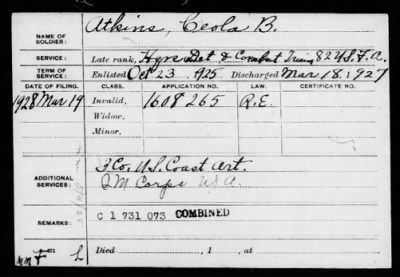 NAME OF SOLDIER: Atkins, Ceola B.
SERVICE: Late rank, Hqrs Det & Combat 82 U.S. F.A.
TERM OF SERVICE: Enlisted Oct 23, 1925 Discharged Mar 18, 1927
DATE OF FILING. CLASS. APPLICATION NO. LAW. CERTIFICATE NO.
1928 Mar 19 Invalid, 1608265 R.E.
Widow,
Minor,
ADDITIONAL SERVICES: Co. U.S. Coast Art.
Q M Corps U S A.
REMARKS: C 1 731 073 COMBINED
Died , 1 , at